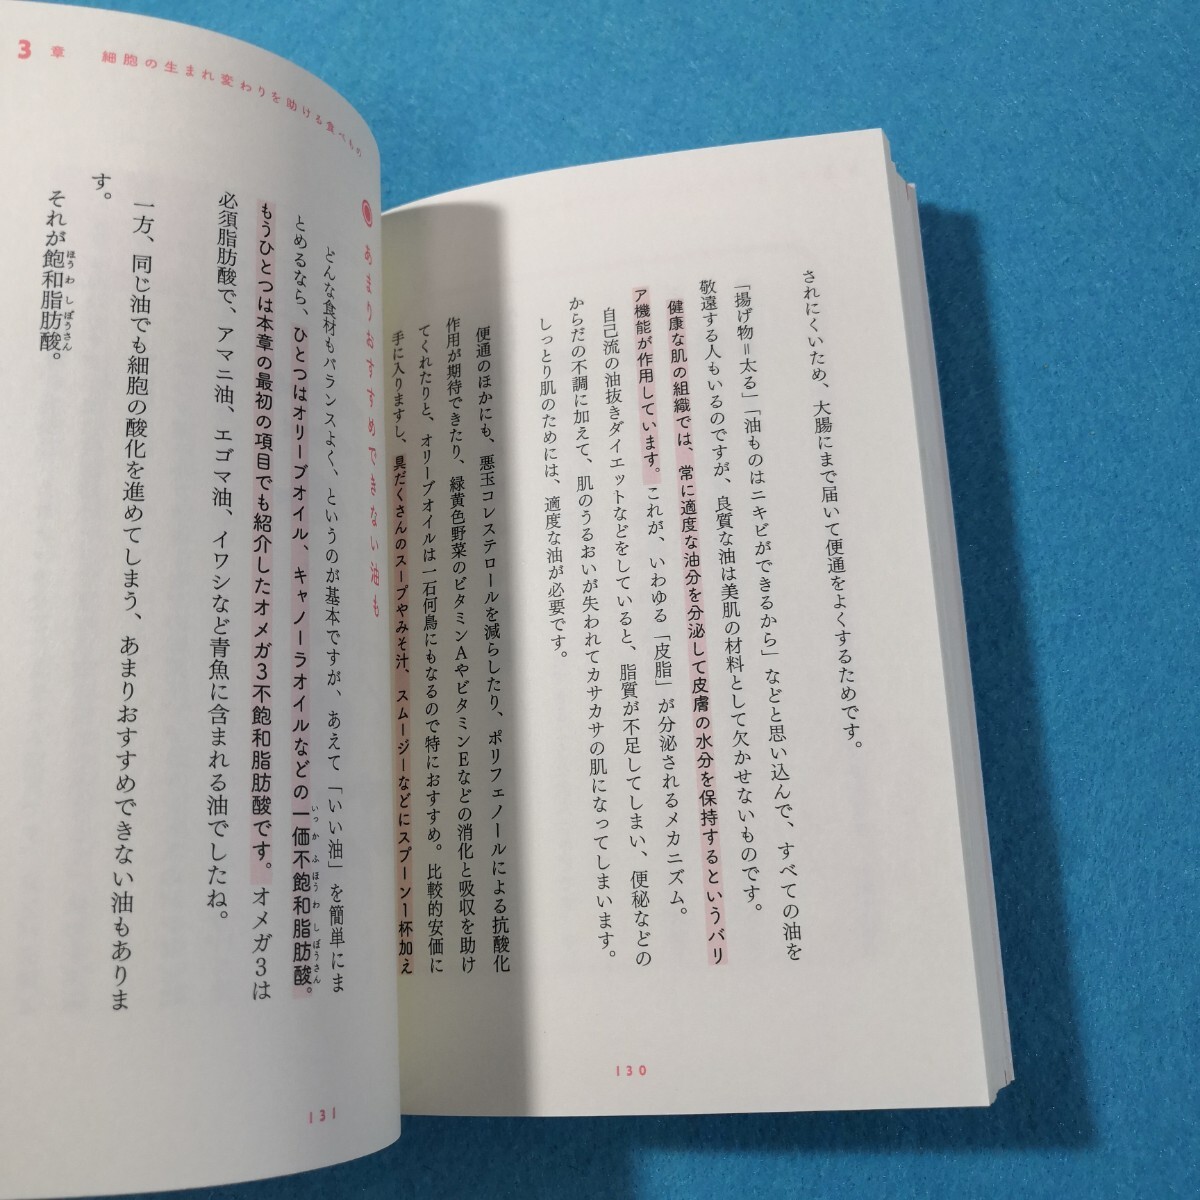 されにくいため、大腸にまで届いて便通をよくするためです。
「揚げ物＝太る」「油ものはニキビができるから」などと思い込んで、すべての油を
敬遠する人もいるのですが、良質な油は美肌の材料として欠かせないものです。
健康な肌の組織では、常に適度な油分を分泌して皮膚の水分を保持するというバリ
ア機能が作用しています。これが、いわゆる「皮脂」が分泌されるメカニズム。
自己流の油抜きダイエットなどをしていると、脂質が不足してしまい、便秘などの
からだの不調に加えて、肌のうるおいが失われてカサカサの肌になってしまいます。
しっとり肌のためには、適度な油が必要です。
便通のほかにも、悪玉コレステロールを減らしたり、ポリフェノールによる抗酸化
作用が期待できたり、緑黄色野菜のビタミンAやビタミンEなどの消化と吸収を助け
てくれたりと、オリーブオイルは一石何鳥にもなるので特におすすめ。比較的安価に
手に入りますし、具だくさんのスープやみそ汁、スムージーなどにスプーン1杯加え
130
3章 細胞の生まれ変わりを助ける食べもの
あまりおすすめできない油も
どんな食材もバランスよく、というのが基本ですが、あえて「いい油」を簡単にま
とめるなら、ひとつはオリーブオイル、キャノーラオイルなどの一価不飽和脂肪酸。
いっかふほうわしぼうさん
もうひとつは本章の最初の項目でも紹介したオメガ3不飽和脂肪酸です。オメガ3は
必須脂肪酸で、アマニ油、エゴマ油、イワシなど青魚に含まれる油でしたね。
一方、同じ油でも細胞の酸化を進めてしまう、あまりおすすめできない油もありま
す。
それが飽和脂肪酸。
ほうわしぼうさん
131